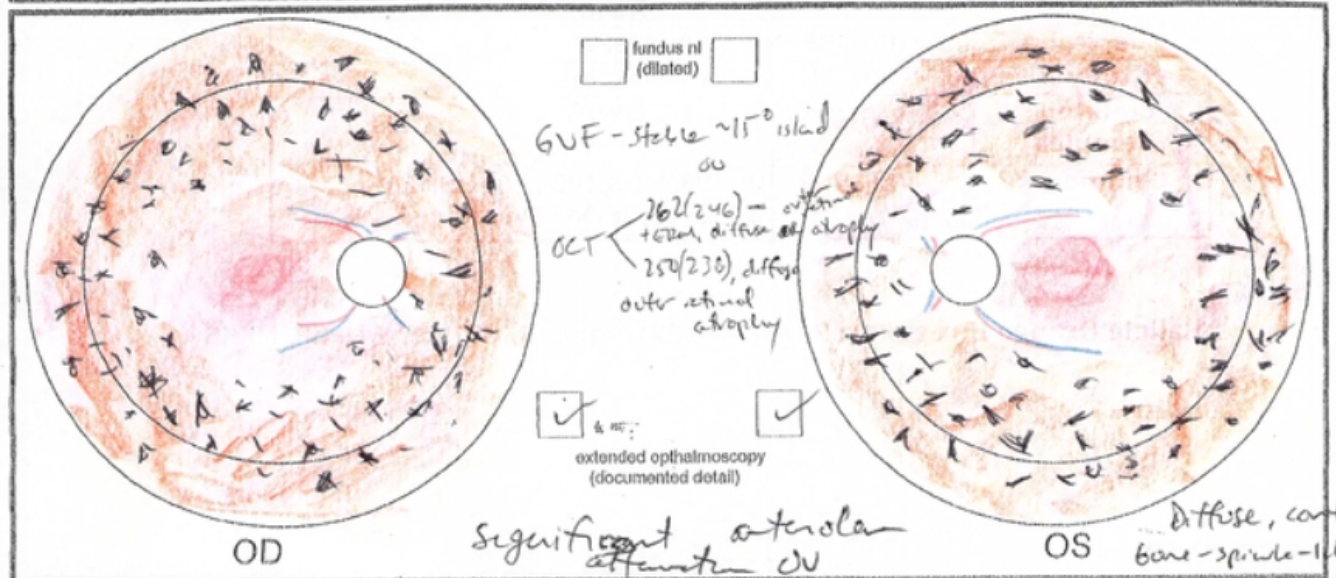 fundus nl
(dilated)
GVF - stable ~15° island
OU
OCT
262(246) - outer retinal
+ERM, diffuse atrophy
250(238), diffuse
outer retinal
atrophy
extended opthalmoscopy
(documented detail)
OD
OS
significant arteriolar
attenuation OU
Diffuse,
bone-spicule-